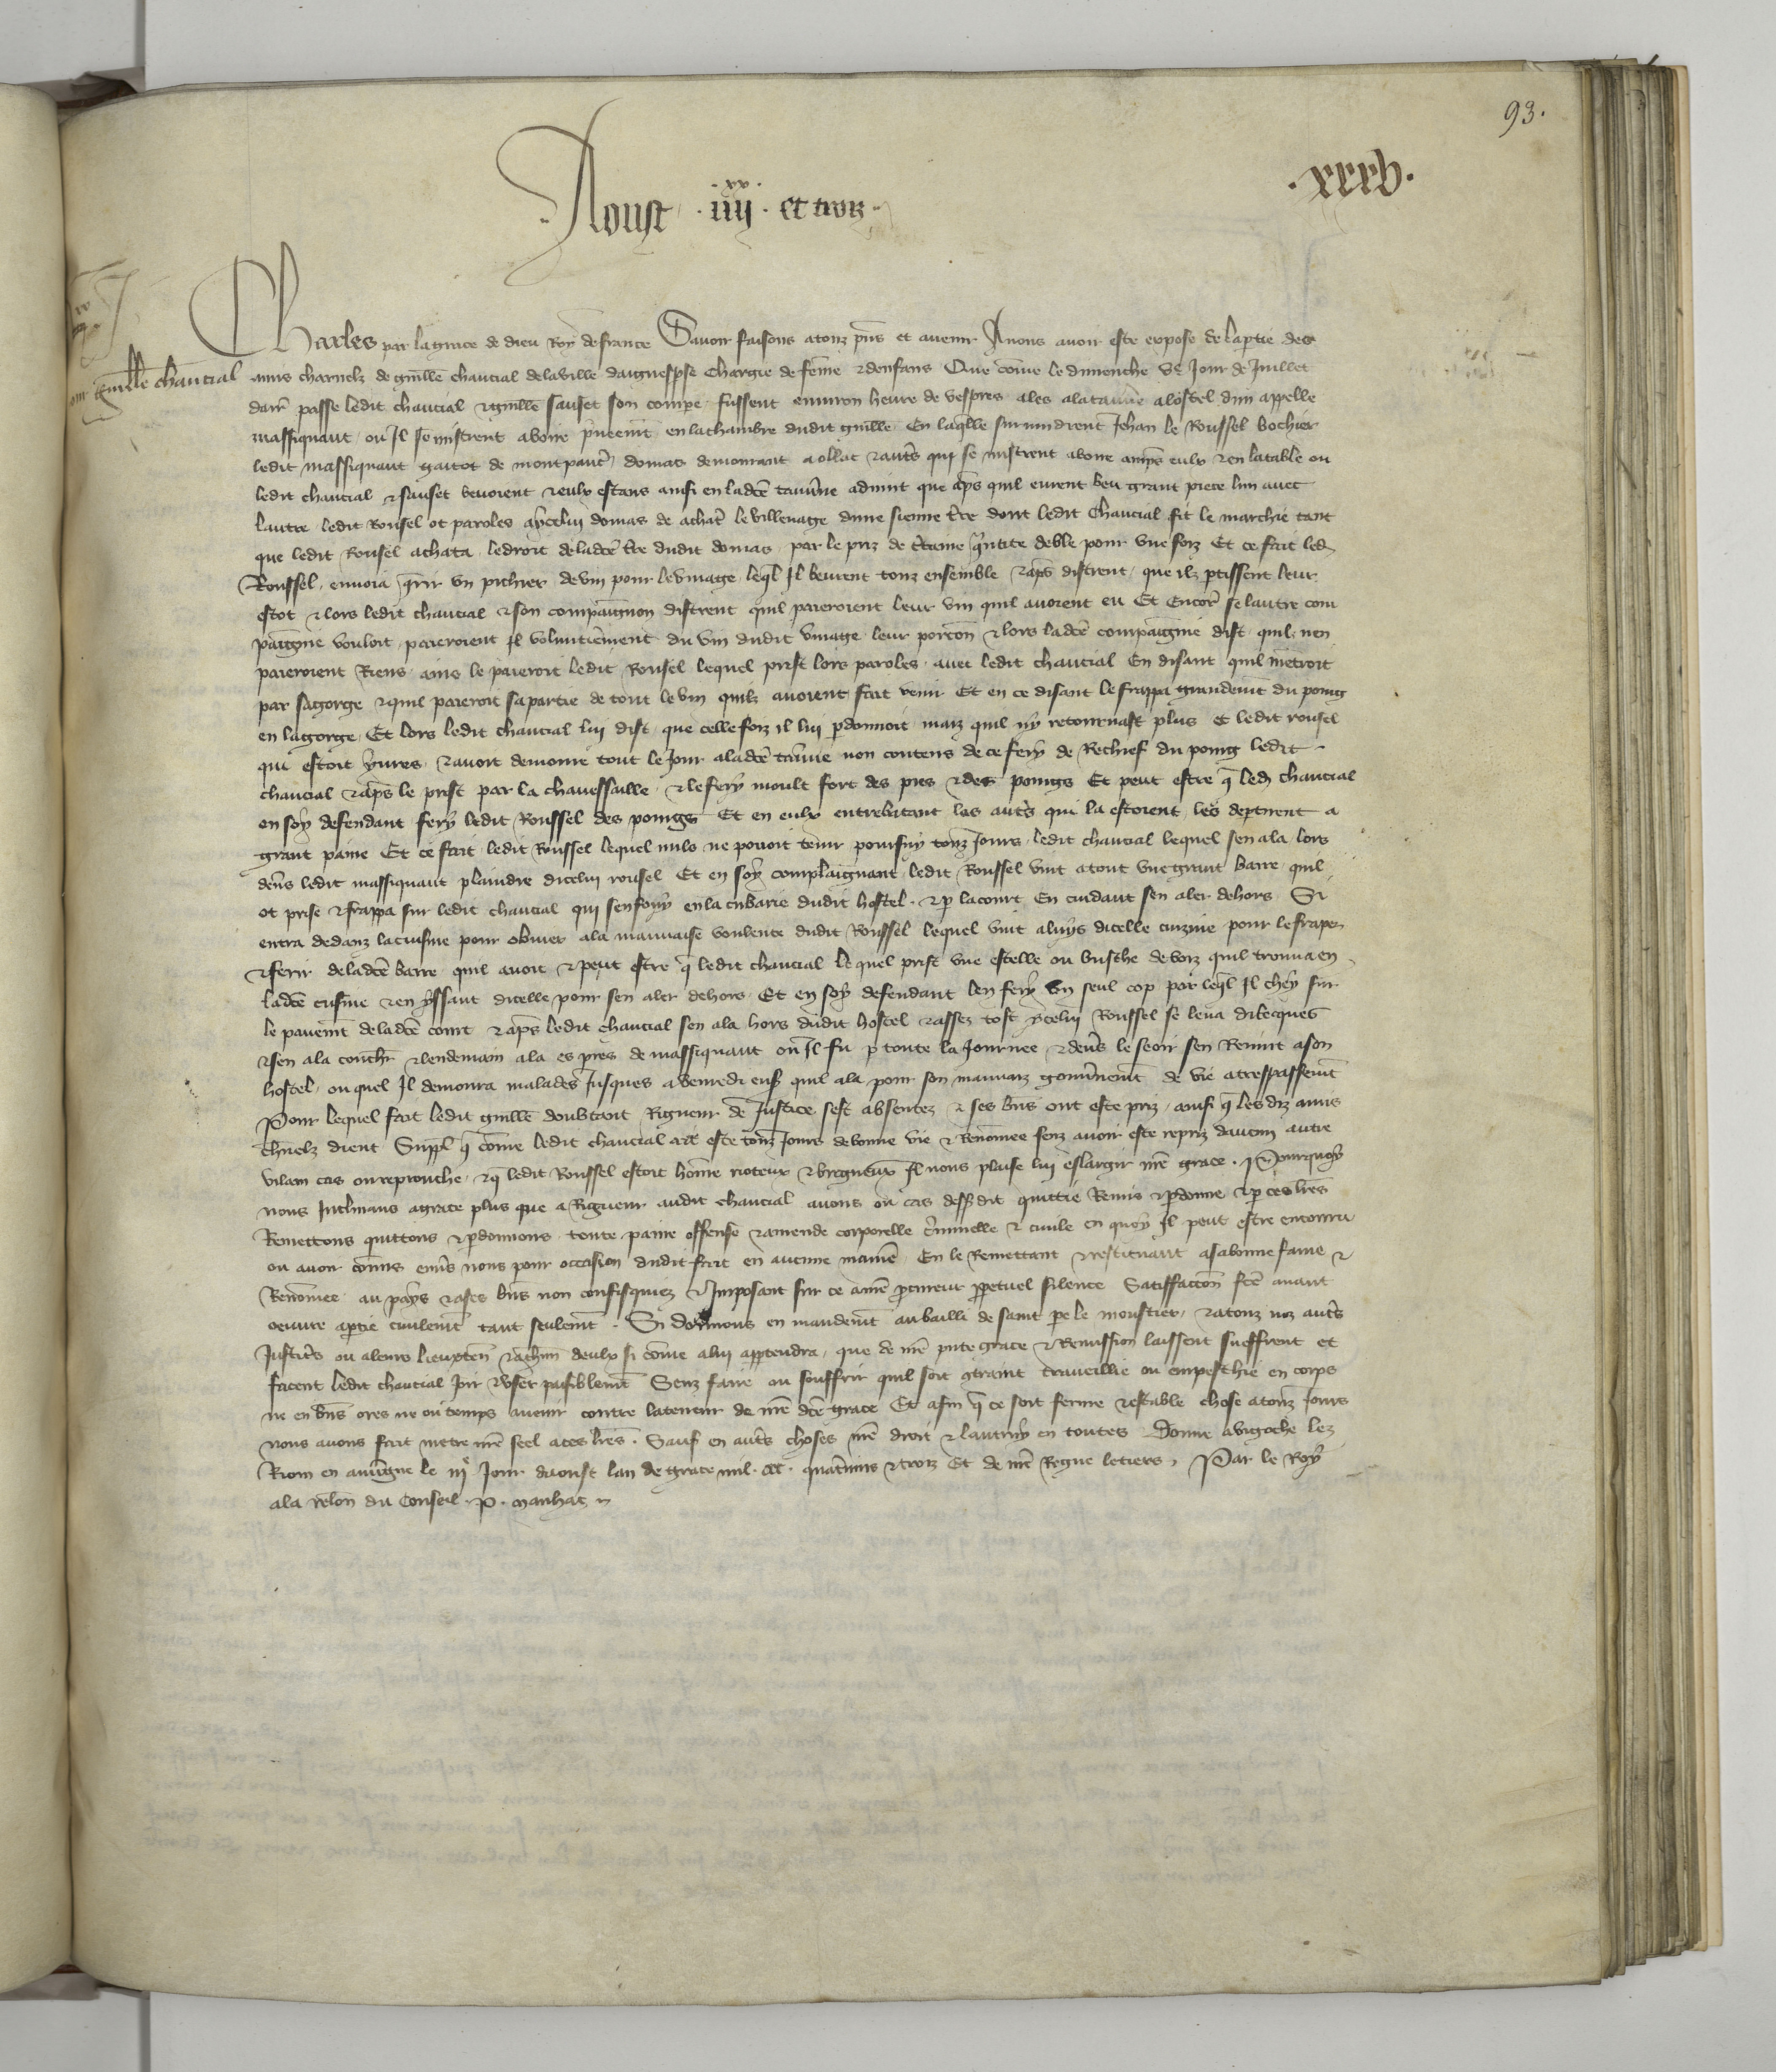 93.
. xxxv .
Aoust . iiii xx . et trois
Charles par la grace de dieu Roy de france Savoir faisons a touz pns et avenir A nous avoir este expose de la partie des
pour Guille chaucial
amis charnelz de Guille chaucial de la ville daiguespse Chargie de feme et denfans Que come le dimenche ve Jour de Juillet
darr passe ledit chaucial et guille sauset son compe fussent environ heure de vespres ales a la taverne a lostel dun appelle
massiquaut ou Il se mistrent a boire pveemt en la chambre dudit guille En laqlle survindrent Jehan le Roussel bochier
ledit massiquaut gaitot de montpaut domas demourant a ollac et auts qui se mistrent a boire amps eulx et en la table ou
ledit chaucial et sauset bevoient et eulx estans ainsi en ladce taverne advint que aps quil eurent beu grant piece lun avec
lautre ledit Rousel ot paroles a ycelui domas de achat le villenage dune sienne tre dont ledit Chaucial fit le marchie tant
que ledit Rousel achata le droit de ladce tre dudit domas par le priz de ctaine qntite de ble pour une foiz Et ce fait led
Roussel envoia qrir un pichier de vin pour le vinage leql Il beurent touz ensemble et aps distrent que ilz ptissent leur
escot et lors ledit chaucial et son compaignon distrent quil paieroient leur vin quil avoient eu Et Encor se lautre com
paignie vouloit paieroient Il voluntierement du vin dudit vinage leur porcon et lors ladce compaignie dist quil nen
paieroient Riens ains le paieroit ledit Rousel lequel prist lors paroles avec ledit chaucial En disant quil mentoit
par sa gorge et quil paieroit sa partie de tout le vin quilz avoient fait venir Et en ce disant le frappa grandemt du poing
en la gorge Et lors ledit chaucial lui dist que celle foiz il lui pdonnoit maiz quil ny retournast plus et ledit rousel
qui estoit yvres et avoit demoure tout le Jour a ladce taverne non contens de ce fery de Rechief du poing ledit
chaucial et aps le prist par la chavessaille et le fery moult fort des pies et des poings Et peut estre q led chaucial
en soy defendant fery ledit Roussel des poings Et en eulx entrebatant les auts qui la estoient les deptirent a
grant paine Et ce fait ledit Roussel lequel nulz ne povoit tenir poursuy touz Jours ledit chaucial lequel sen ala lors
devs ledit massiquaut plaindre dicelui rousel Et en soy complaignant ledit Roussel vint a tout une grant barre quil
ot prise et frappa sur ledit chaucial qui senfouy en la cubarie dudit hostel et p la court En cuidant sen aler dehors Si
entra dedanz la cuisine pour obvier a la mauvaise voulente dudit Roussel lequel vint a luys dicelle cuizine pour le frapper
et ferir de ladce barre quil avoit et peut estre q ledit chaucial lequel prist une estelle ou busche de boiz quil trouva en
ladce cuisine et en yssant dicelle pour sen aler dehors Et en soy defendant len fery un seul cop par leql Il chey sur
le pavemt de ladce court et aps ledit chaucial sen ala hors dudit hostel et assez tost ycelui Roussel se leva dilecques
et sen ala couchr et lendemain ala es pres de massiquaut ou Il fu p toute la Journee et devs le seoir sen Revint a son
hostel ou quel Il demoura malades Jusques a venredi ens quil ala pour son mauvaiz gouvnemt de vie a trespassemt
Pour lequel fait ledit guille doubtant Rigueur de Justice sest absentez et ses bns ont este priz ainsi q les diz amis
chnelz dient Suppl q come ledit chaucial ait este touz Jours de bonne vie et Renomee senz avoir este repriz daucun autre
vilain cas ou reprouche et q ledit Roussel estoit home rioteux et brigueux Il nous plaise lui eslargir nre grace . Pourquoy
nous Inclinans a grace plus que a Rigueur audit chaucial avons ou cas dessdit quittie Remis et pdonne et p ces lres
Remettons quittons et pdonnons toute paine offense et amende corporelle criminelle et civile en quoy Il peut estre encouru
ou avoir comis envs nous pour occasion dudit fait en aucune maniere En le Remettant et restituant a sa bonne fame et
Renomee au pays et a ses bns non confisquiez et Imposant sur ce a nre pcureur ppetuel silence Satisfaccon fce avant
oeuvre a ptie civilemt tant seulemt . Si donnons en mandemt au bailli de saint pe le moustier et a touz noz auts
Justics ou a leurs lieuxten et a chun deulx si come a lui apptendra que de nre pnte grace et Remission laissent sueffrent et
facent ledit chaucial Joir et user paisiblemt Senz faire ou souffrir quil soit gtraint travaillie ou empeschie en corps
ne en bns ores ne ou temps avenir contre la teneur de nre dce grace Et afin q ce soit ferme et estable chose a touz Jours
nous avons fait mettre nre seel a ces lres . Sauf en auts choses nre droit et lautruy en toutes Donne a vigoche lez
Riom en auvgne le iiie Jour daoust lan de grace mil . ccc . quatvins et troiz Et de nre Regne le tiers . Par le Roy
a la relon du Conseil . P . manhac